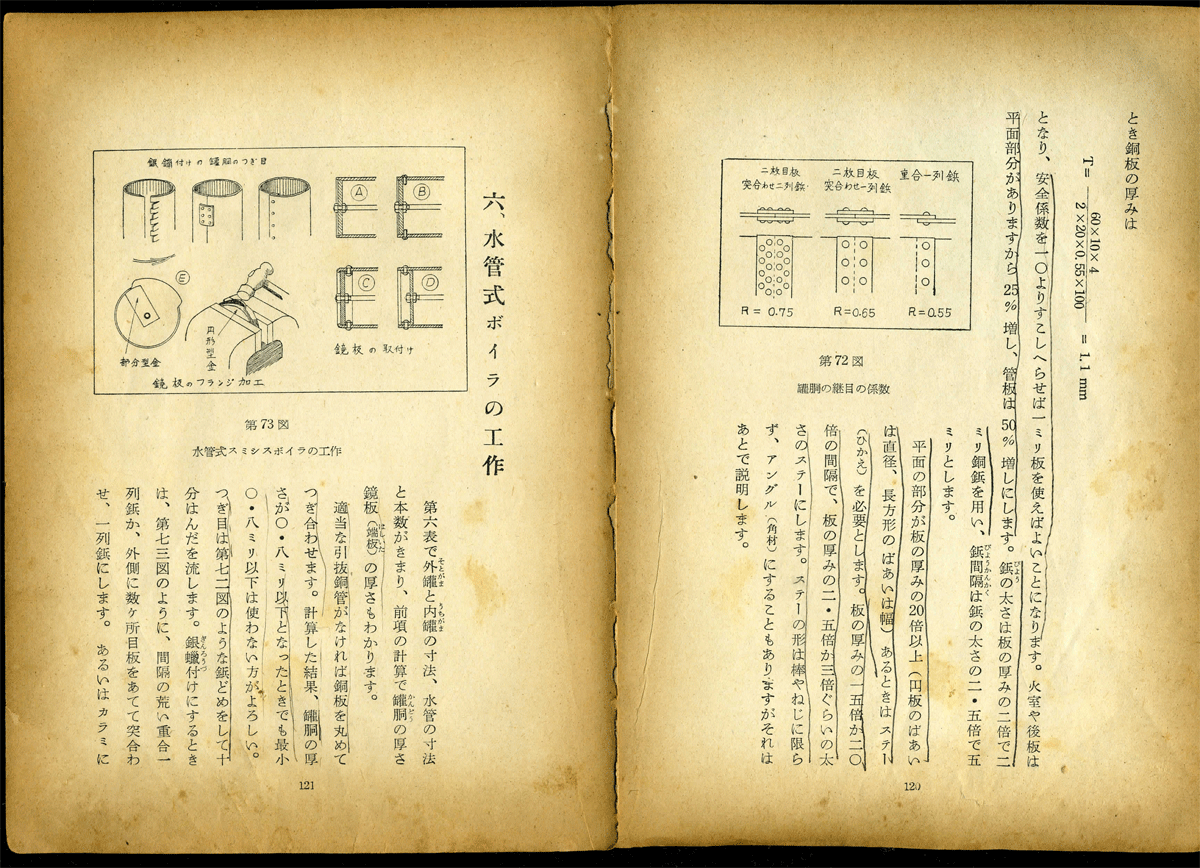 とき銅板の厚みは
T= 60×10×4 / 2×20×0.55×100 = 1.1 mm
となり、安全係数を一〇よりすこしへらせば一ミリ板を使えばよいことになります。火室や後板は
平面部分がありますから25%増し、管板は50%増しにします。鋲の太さは板の厚みの二倍で二
ミリ銅鋲を用い、鋲間隔は鋲の太さの二・五倍で五
ミリとします。
平面の部分が板の厚みの20倍以上(円板のばあい
は直径、長方形のばあいは幅)あるときはステー
(ひかえ)を必要とします。板の厚みの一五倍か二〇
倍の間隔で、板の厚みの二・五倍か三倍ぐらいの太
さのステーにします。ステーの形は棒やねじに限ら
ず、アングル(角材)にすることもありますがそれは
あとで説明します。
重合一列鋲
R=0.55
二枚目板
突合わせ一列鋲
R=0.65
二枚目板
突合わせ二列鋲
R=0.75
第72図
罐胴の継目の係数
120
六、水管式ボイラの工作
銀鑞付けの罐胴のつぎ目
A
B
C
D
E
鏡板の取付け
部分型金
円形型金
鏡板のフランジ加工
第73図
水管式スミシスボイラの工作
第六表で外罐と内罐の寸法、水管の寸法
と本数がきまり、前項の計算で罐胴の厚さ
鏡板(端板)の厚さもわかります。
適当な引抜銅管がなければ銅板を丸めて
つぎ合わせます。計算した結果、罐胴の厚
さが〇・八ミリ以下となったときでも最小
〇・八ミリ以下は使わない方がよろしい。
つぎ目は第七二図のような鋲どめをして十
分はんだを流します。銀蠟付けにするとき
は、第七三図のように、間隔の荒い重合一
列鋲か、外側に数ケ所目板をあてて突合わ
せ、一列鋲にします。あるいはカラミに
121